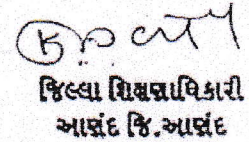 જિલ્લા શિક્ષણાધિકારી
આણંદ જિ.આણંદ